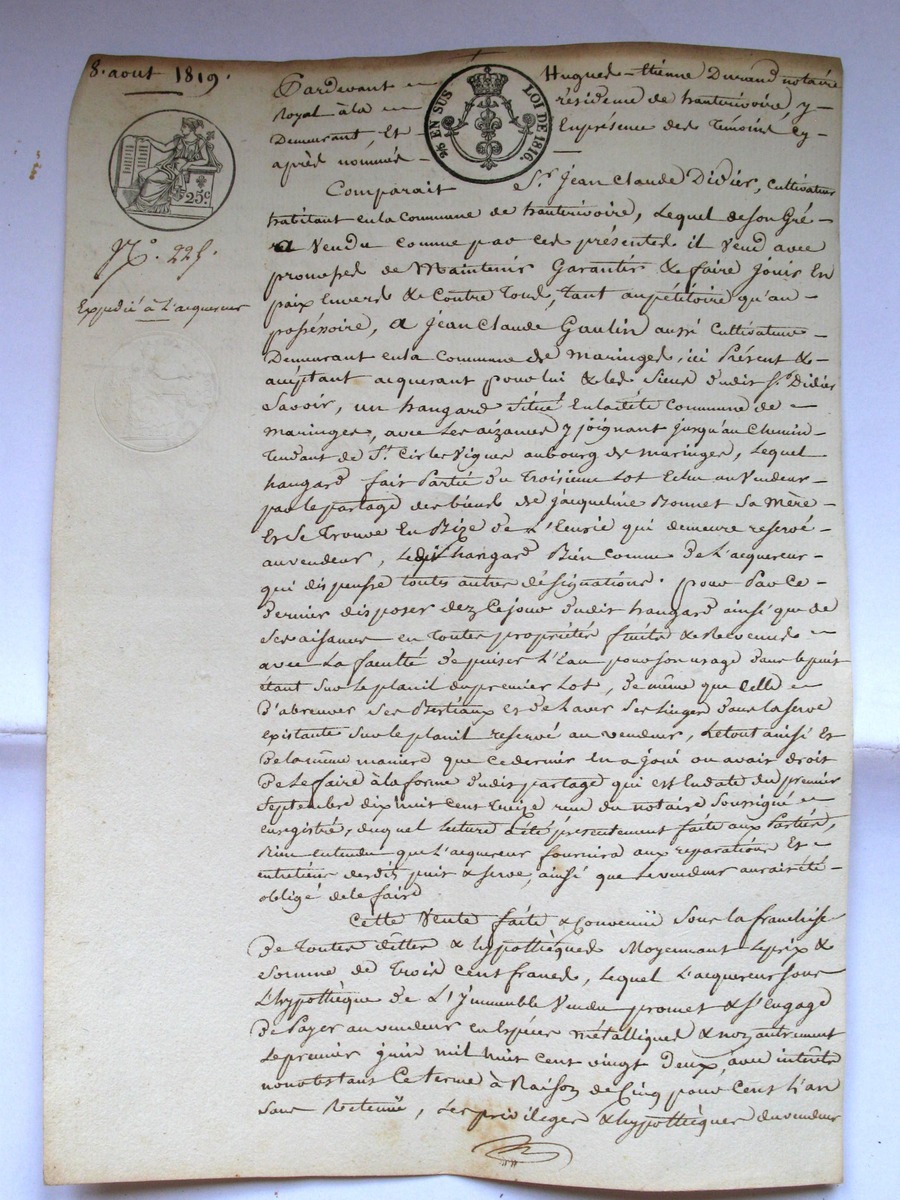 8. aout 1819.
Pardevant Hugues-Etienne Durand notaire
Royal à la résidence de hauterivoire, y
Demeurant, Et En présence des témoins Cy-
après nommés
EN SUS LOI DE 1816.
25c
N.o 225.
Expédié à L'acquereur
Comparait Sr. Jean Claude Didier, Cultivateur
habitant en la Commune de hauterivoire, Lequel de son Gré
a Vendu comme par ces présentes il Vend avec
promesse de Maintenir Garantir & faire Jouir En
paix Envers & Contre Tous, tant au pétitoire qu'au
possessoire, a Jean Claude Gaulin aussi Cultivateur
Demeurant en la Commune de Maringes, ici Présent &
acceptant acquerant pour lui & les Siens dudit Sr. Didier
Savoir, un hangard Situé En ladite Commune de
Maringes, avec Les aizances y joignant jusqu'au Chemin
Tendant de St. Cir les Vignes au bourg de Maringes, Lequel
hangard fait Partie du Troisième Lot Echu au Vendeur
par le partage des biens de Jacqueline Bonnet Sa Mère
Et Se Trouve En Bize de L'Ecurie qui demeure reservé
au vendeur, Ledit hangard Bien Comme De L'acquereur
qui dispense toutes autres désignations. pour Par Ce
Dernier disposer dez Ce jour dudit hangard ainsi que de
Ses aisances en Toutes propriétés fruits & Revenus
avec La faculté De puiser L'Eau pour son usage Dans le puit
étant Sur Le planil du premier Lot, De même que Celle
D'abreuver Ses Bestiaux et De Laver Ses Linges Dans La serve
existante Sur Le planil reservé au vendeur, Le tout ainsi Et
De la même maniere que ce dernier En a joui ou avait droit
De Le faire à la forme dudit partage qui est En date du premier
Septembre dix huit cent treize reçu du notaire Soussigné
enregistré, duquel Lecture a été présentement faite aux Parties,
Bien entendu que L'acquereur fournira aux reparations Et
entretien desdits puit & serve, ainsi que Le vendeur aurait été
obligé de le faire
Cette Vente faite & Convenüe Sous La franchise
De Toutes dettes & hypothèques Moyennant Le prix &
Somme de Trois Cent francs, Lequel L'acquereur sous
L'hypothèque De L'Immeuble Vendu promet & S'Engage
De Payer au vendeur en Espèces métalliques & non autrement
Le premier juin mil huit Cent vingt Deux, avec intérêts
nonobstant Ce terme à Raison de Cinq pour Cent L'an
Sans Retenüe, Les privileges & hypothèques du vendeur